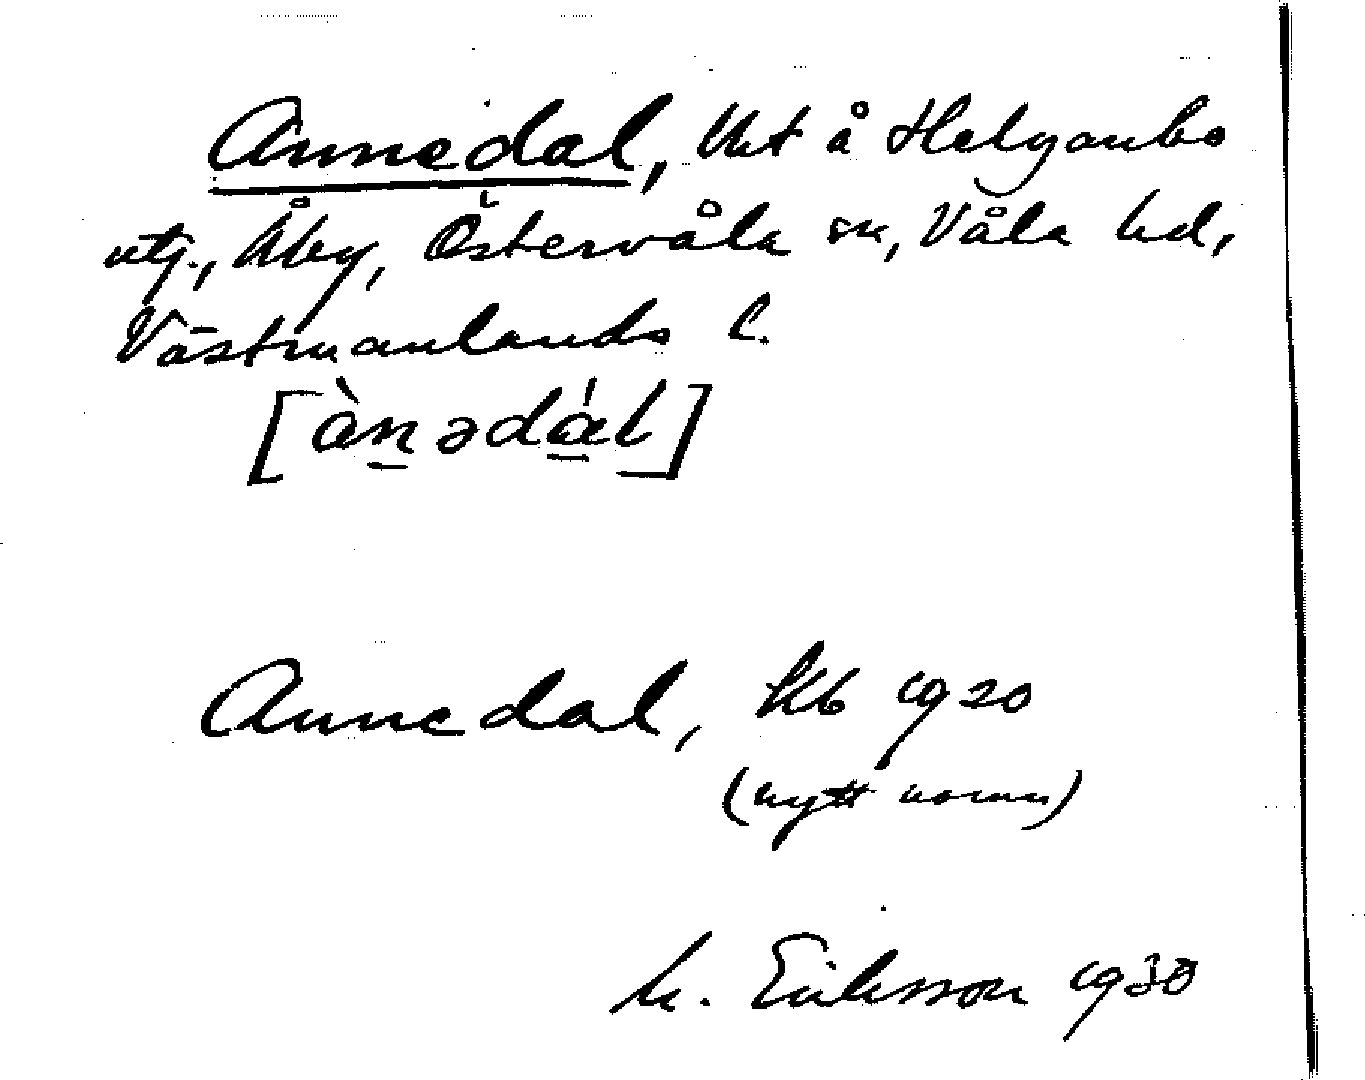 Annedal, lht å Helganbo
utj., Åby, Östervåla sn, Våla hd,
Västmanlands l.
[àn̠ədá̠l]
Annedal, kb 1920
(nytt namn)
M. Eriksson 1930